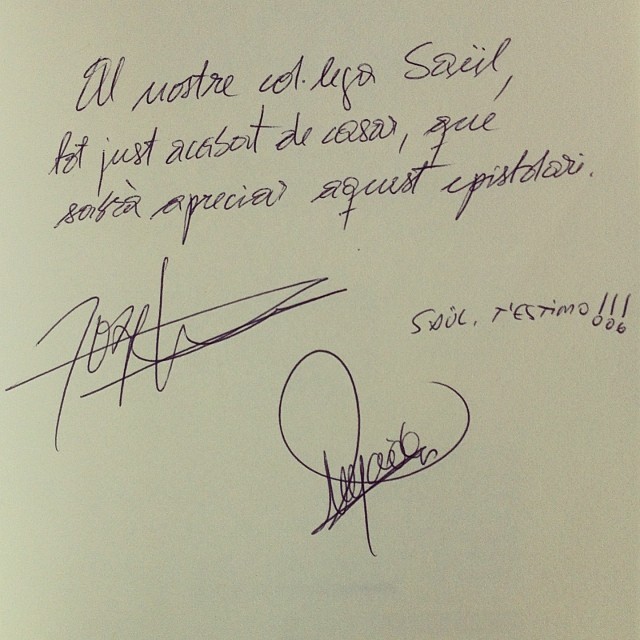 Al nostre col·lega Saül,
tot just acabat de casar, que
sabrà apreciar aquest epistolari.
SAÜL, T'ESTIMO!!!